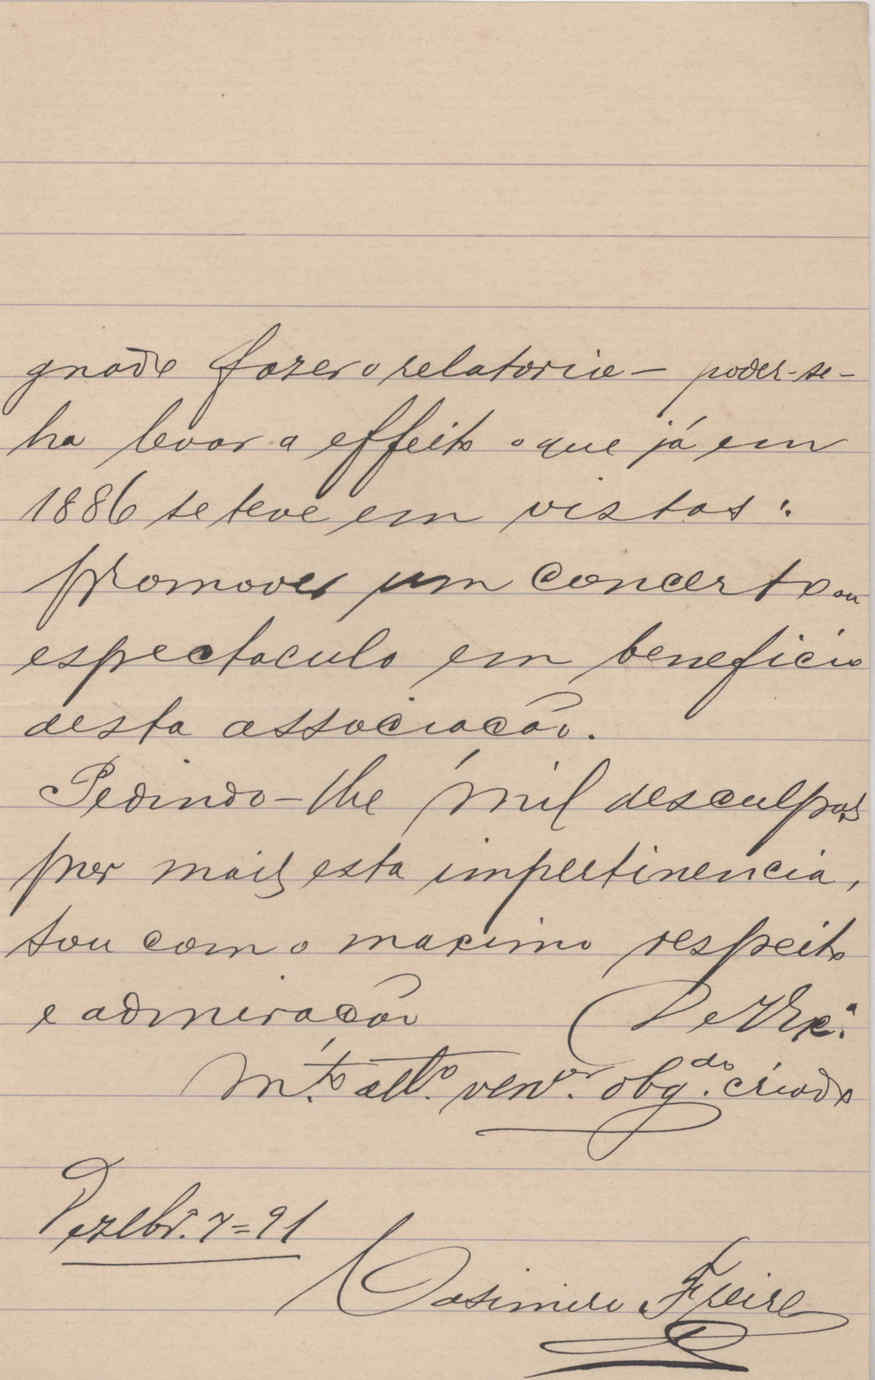 gnado fazer o relatorio – poder-se-
ha levar a effeito o que já em
1886 se teve em vistas:
promover um concerto ou
espectaculo em beneficio
desta associação.
Pedindo-lhe mil desculpas
por mais esta impertinencia,
sou com o maximo respeito
e admiração De V. Exª
M.to att.o ven.or obg.do criado
Dezbr. 7=91
Casimiro Freire